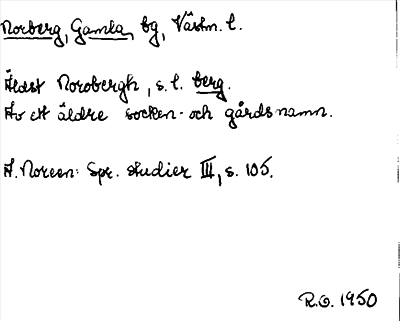 Norberg, Gamla, bg, Västm. l.
Äldst Norobergh, s. l. berg.
Av ett äldre socken- och gårdsnamn.
A. Noreen: Spr. studier III, s. 105.
R.O. 1950